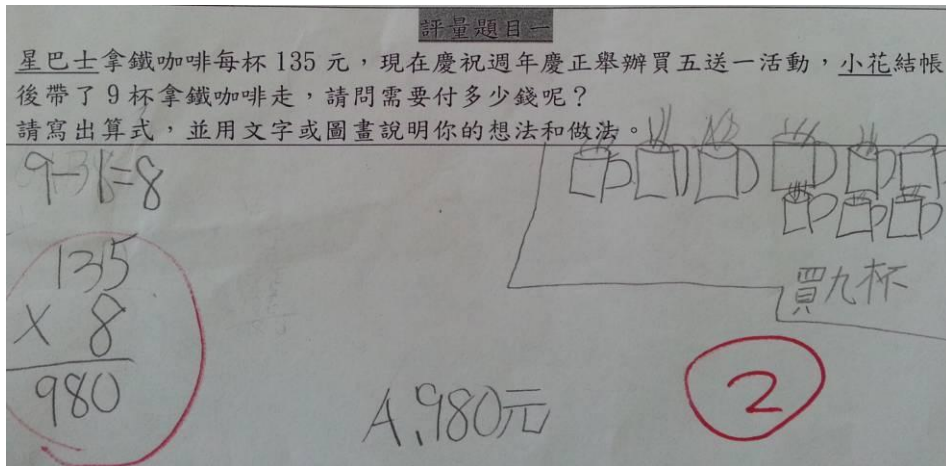 評量題目一
星巴士拿鐵咖啡每杯 135 元，現在慶祝週年慶正舉辦買五送一活動，小花結帳
後帶了 9 杯拿鐵咖啡走，請問需要付多少錢呢？
請寫出算式，並用文字或圖畫說明你的想法和做法。
9-1=8
135
× 8
980
買九杯
A、980元
2